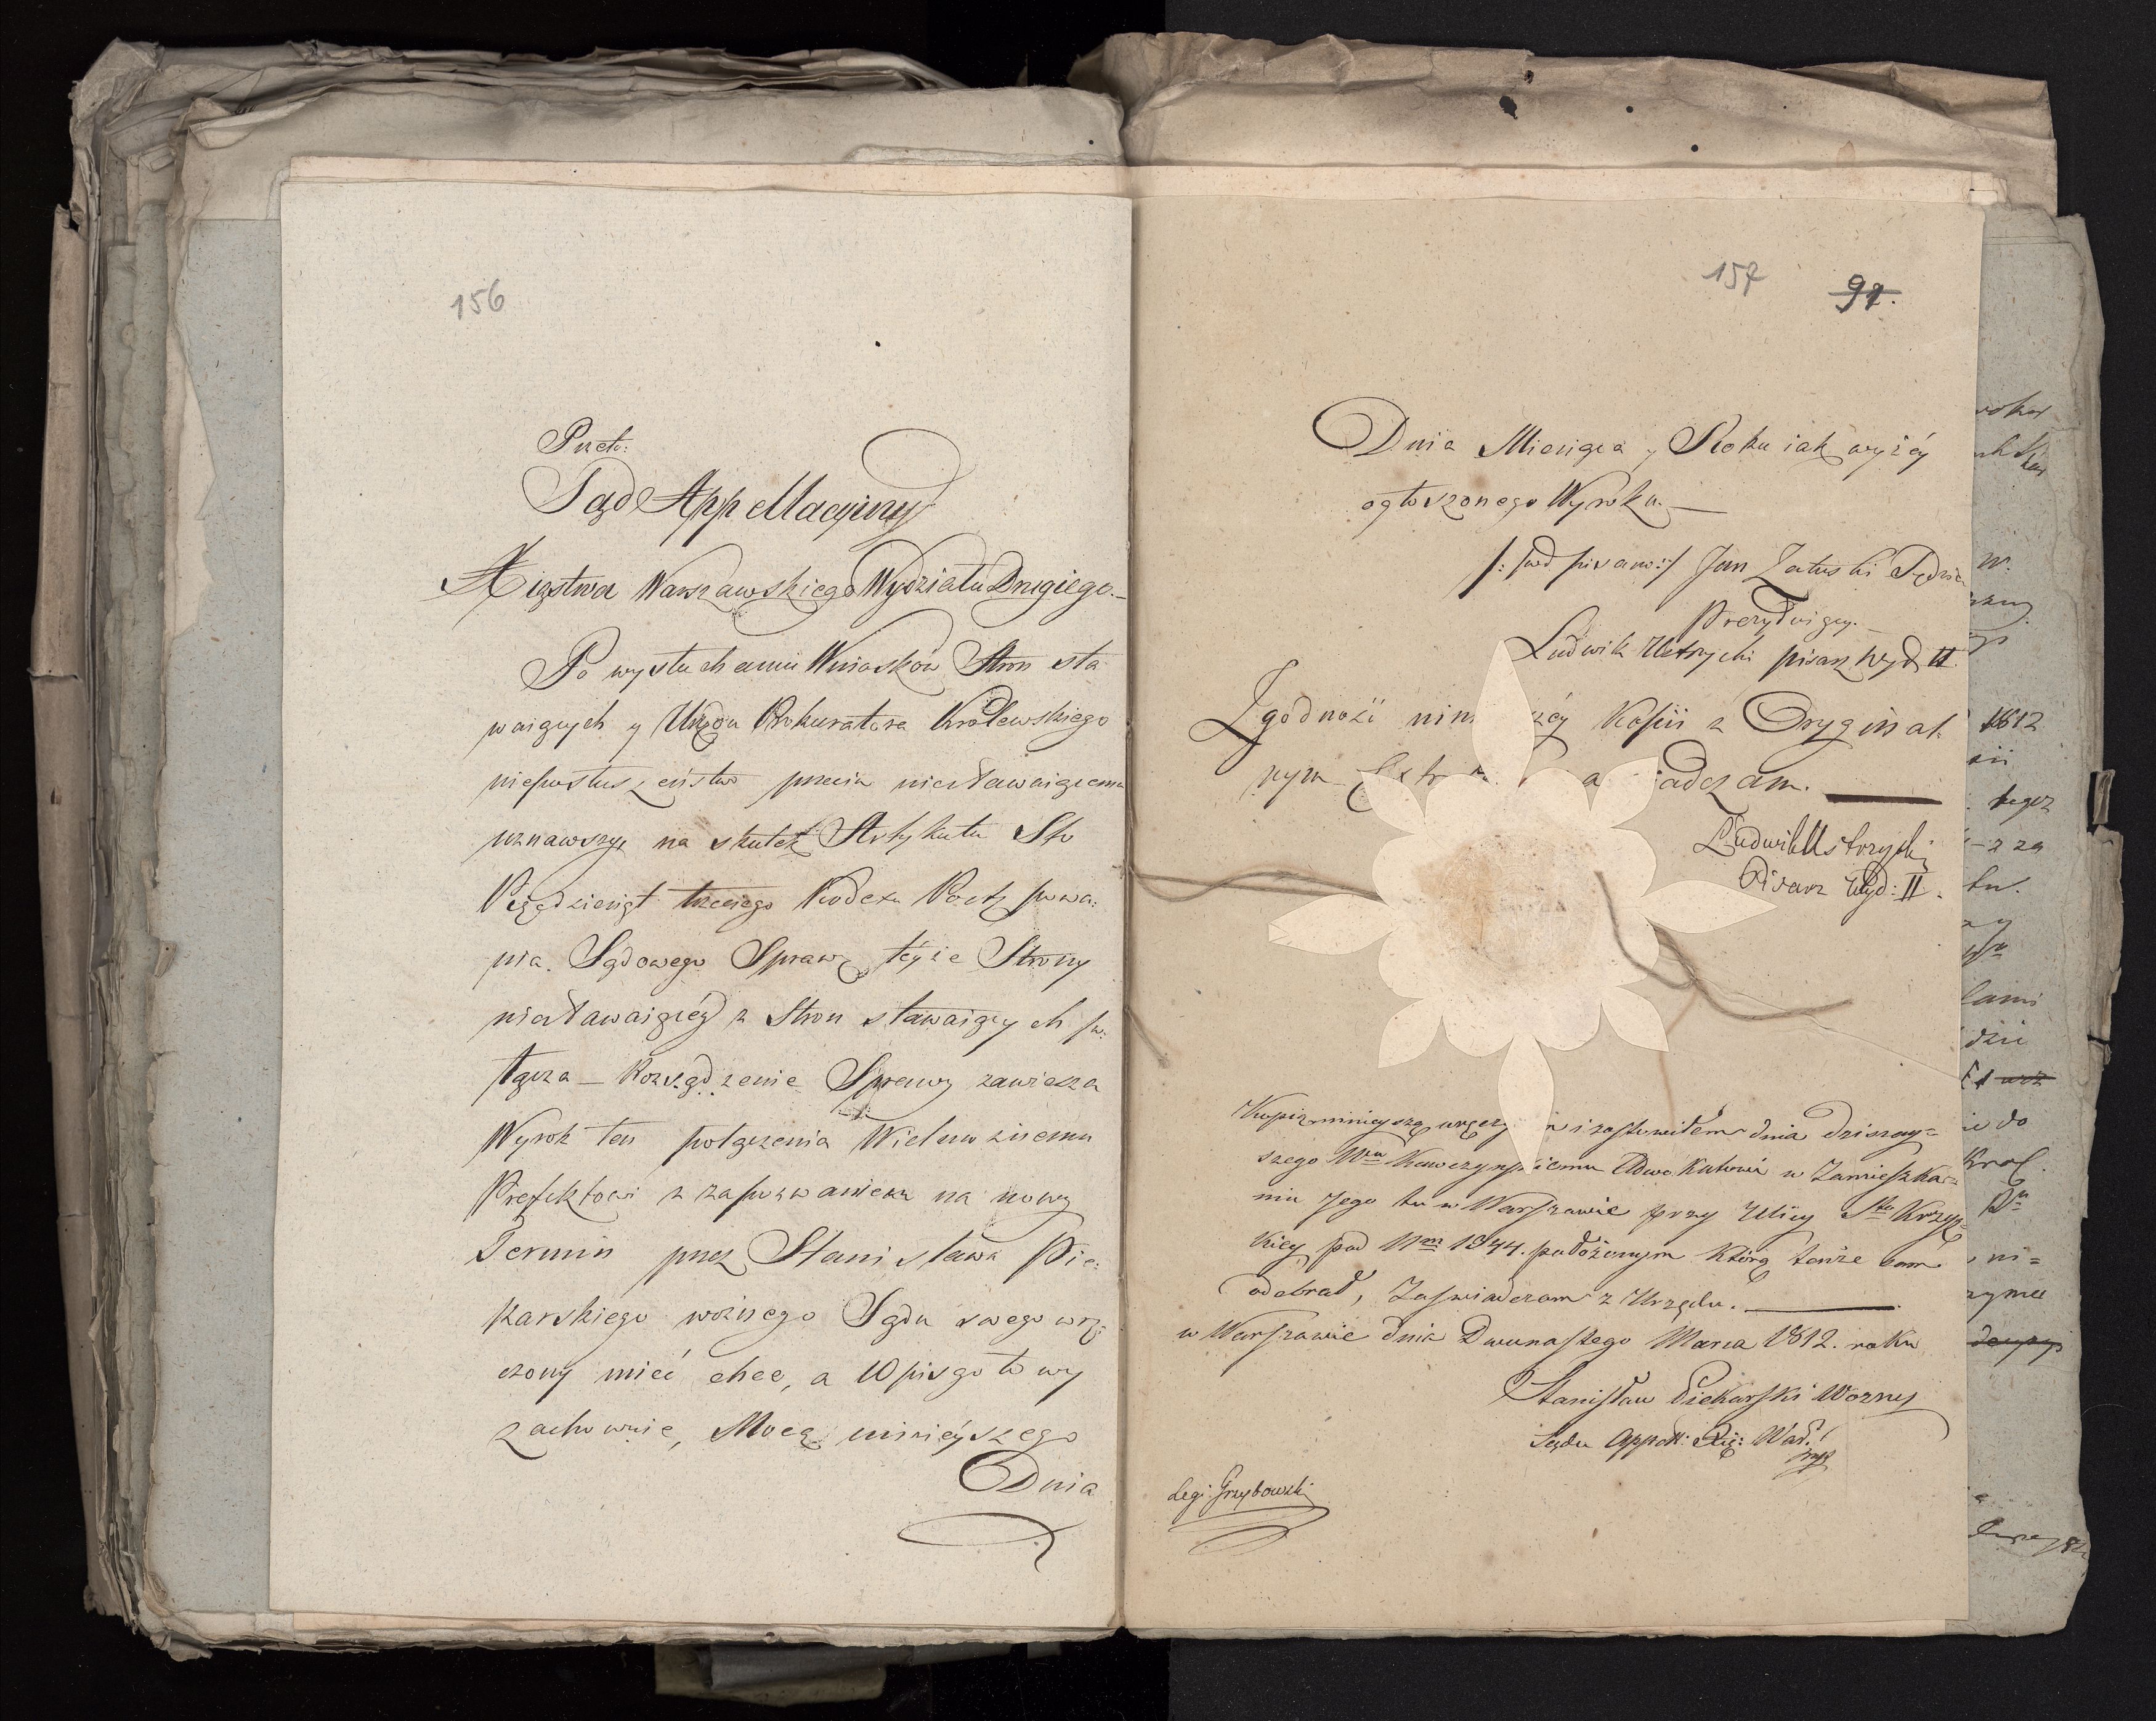 156
Przeto:
Sąd Appellacyiny
Xięstwa Warszawskiego Wydziału Drugiego.—
Po wysłuchaniu Wniosków Stron sta
waiących y Urzędu Prokuratora Królewskiego
nieposłuszeństwo przeciw niestawaiącemu
uznawszy, na skutek Artykułu Sto
Pięćdziesiąt trzeciego Kodexu Postępowa:
nia Sądowego Sprawę teyże Strony
niestawaiącéy z Stron stawaiących po:
łącza — Rozsądzenie Sprawy zawiesza
Wyrok ten połączenia Wielmożnemu
Prefektowi z zapozwaniem na nowy
Termin przez Stanisława Pie:
karskiego woźnego Sądu swego wrę:
czony mieć chce, a Opis gotowy
zachowuie, Mocą ninieyszego
Dnia
157
91.
Dnia Miesiąca y Roku iak wyżéy
ogłoszonego Wyroku.—
/: podpisano :/ Jan Załuski Sędzia
Prezyduiący.—
Ludwik Ustrzycki pisarz Wyd II.
Zgodność nin széy Kopii z Oryginal:
nym adczam. —
Ludwik Ustrzycki
Pisarz Wyd: II.
Kopią ninieyszą wręczy i zostawiłem dnia dzisiay=
szego Adwokatowi w Zamieszka=
niu Jego tu w Warszawie przy Ulicy Sto Krzyz=
kiey pod Nrm 1344. położonym którą tenże sam
odebrał, Zaświadczam z Urzędu. —
w Warszawie dnia Dwunastego Marca 1812. roku
Stanisław Piekarski Wozny
Sądu Appell: Xię: War:
Leg: Grzybowski
1812